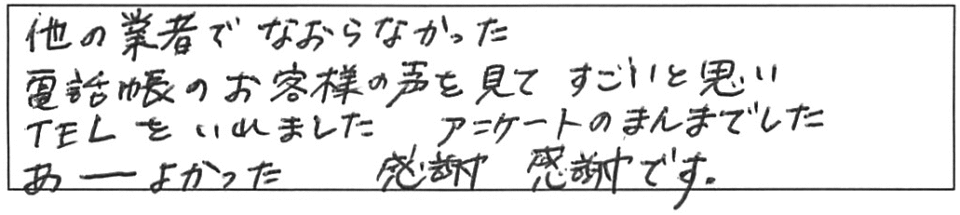 他の業者でなおらなかった
電話帳のお客様の声を見て すごいと思い
TELをいれました アニケートのまんまでした
あーよかった 感謝 感謝です。